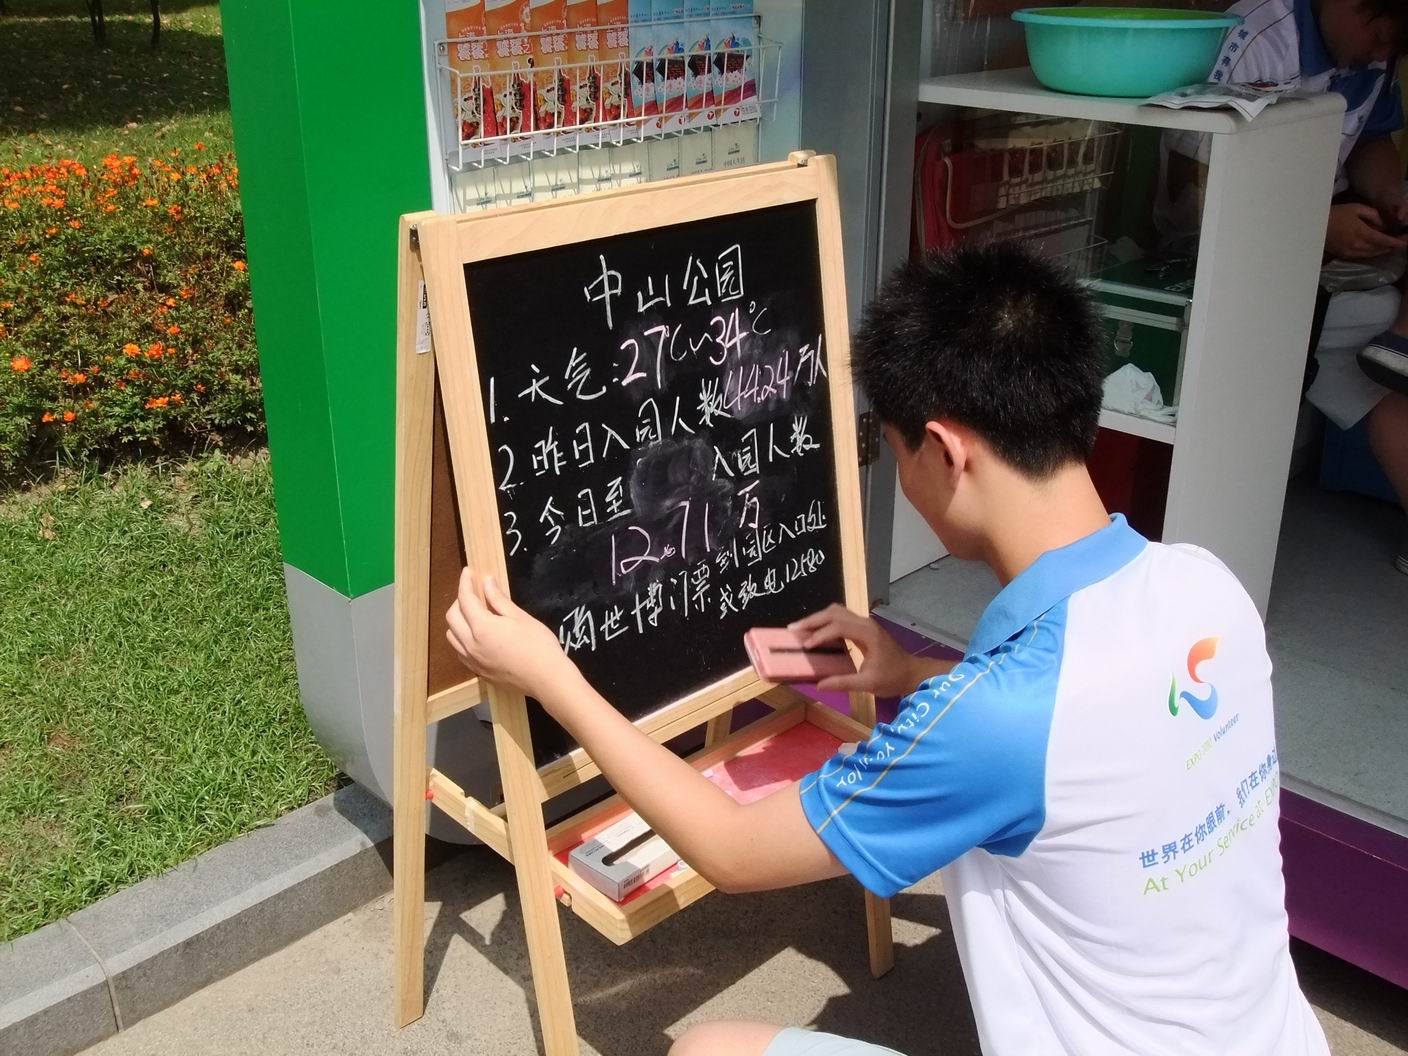 中山公园
1. 天气:27℃~34℃
2. 昨日入园人数44.24万人
3. 今日至 入园人数
12.71万
购世博门票 到园区入口处
或致电12580
Our City, Your
EXPO 2010 Volunteer
世界在你眼前，我们在你身边
At Your Service at EXPO
城市有我